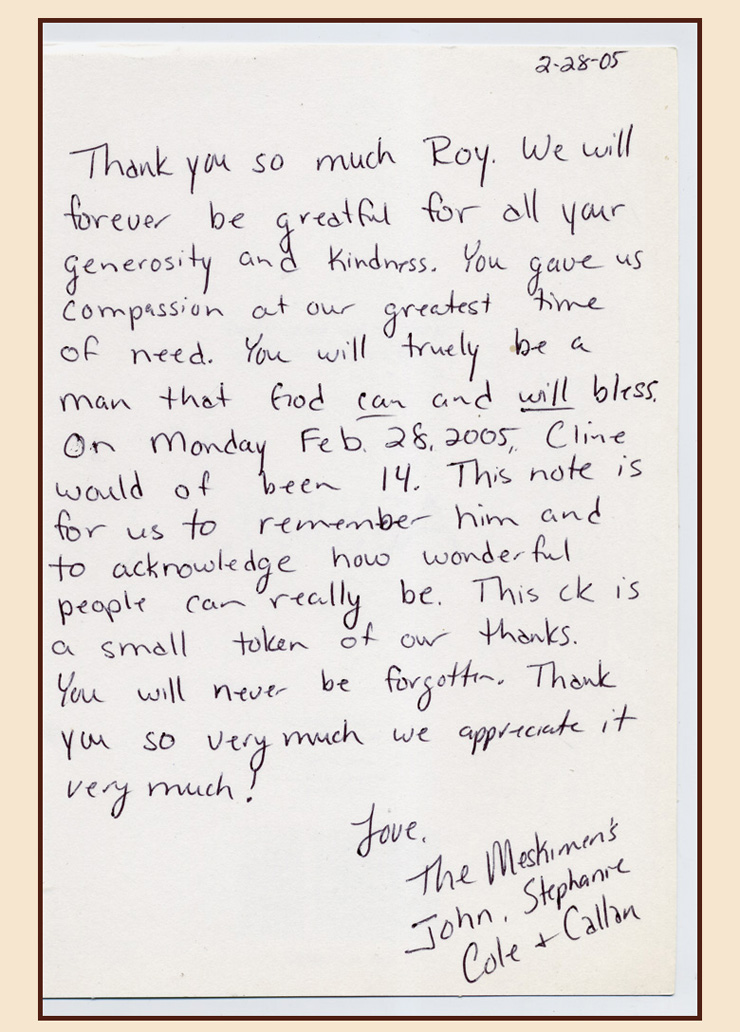 2-28-05
Thank you so much Roy. We will
forever be greatful for all your
generosity and kindness. You gave us
compassion at our greatest time
of need. You will truely be a
man that God can and will bless.
On Monday Feb. 28, 2005, Cline
would of been 14. This note is
for us to remember him and
to acknowledge how wonderful
people can really be. This ck is
a small token of our thanks.
You will never be forgotten. Thank
you so very much we appreciate it
very much!
Love,
The Meskimen's
John, Stephanie
Cole + Callan